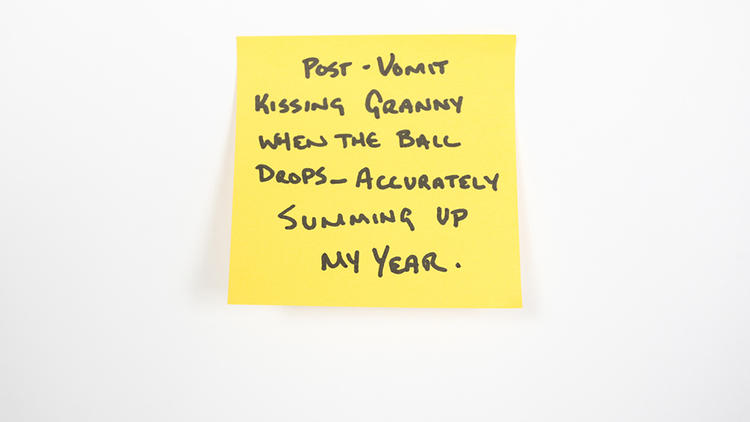 POST - VOMIT
KISSING GRANNY
WHEN THE BALL
DROPS - ACCURATELY
SUMMING UP
MY YEAR.